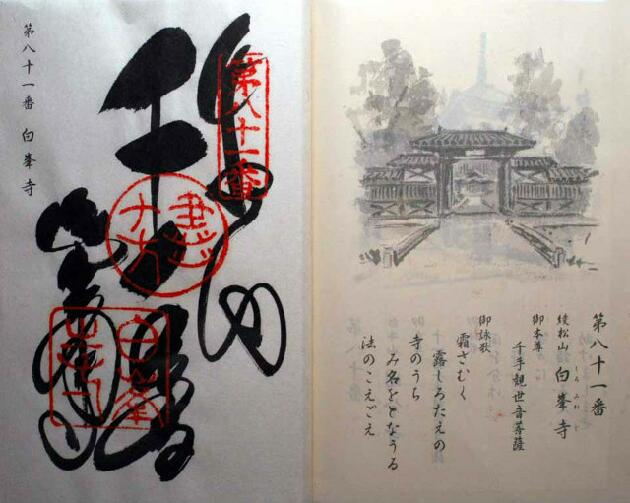 第八十一番
綾松山 白峯寺
しろみね
御本尊
千手観世音菩薩
御詠歌
霜さむく
露しろたえの
寺のうち
み名をとなうる
法のこえごえ
第八十一番
千手
第八十一番 白峯寺